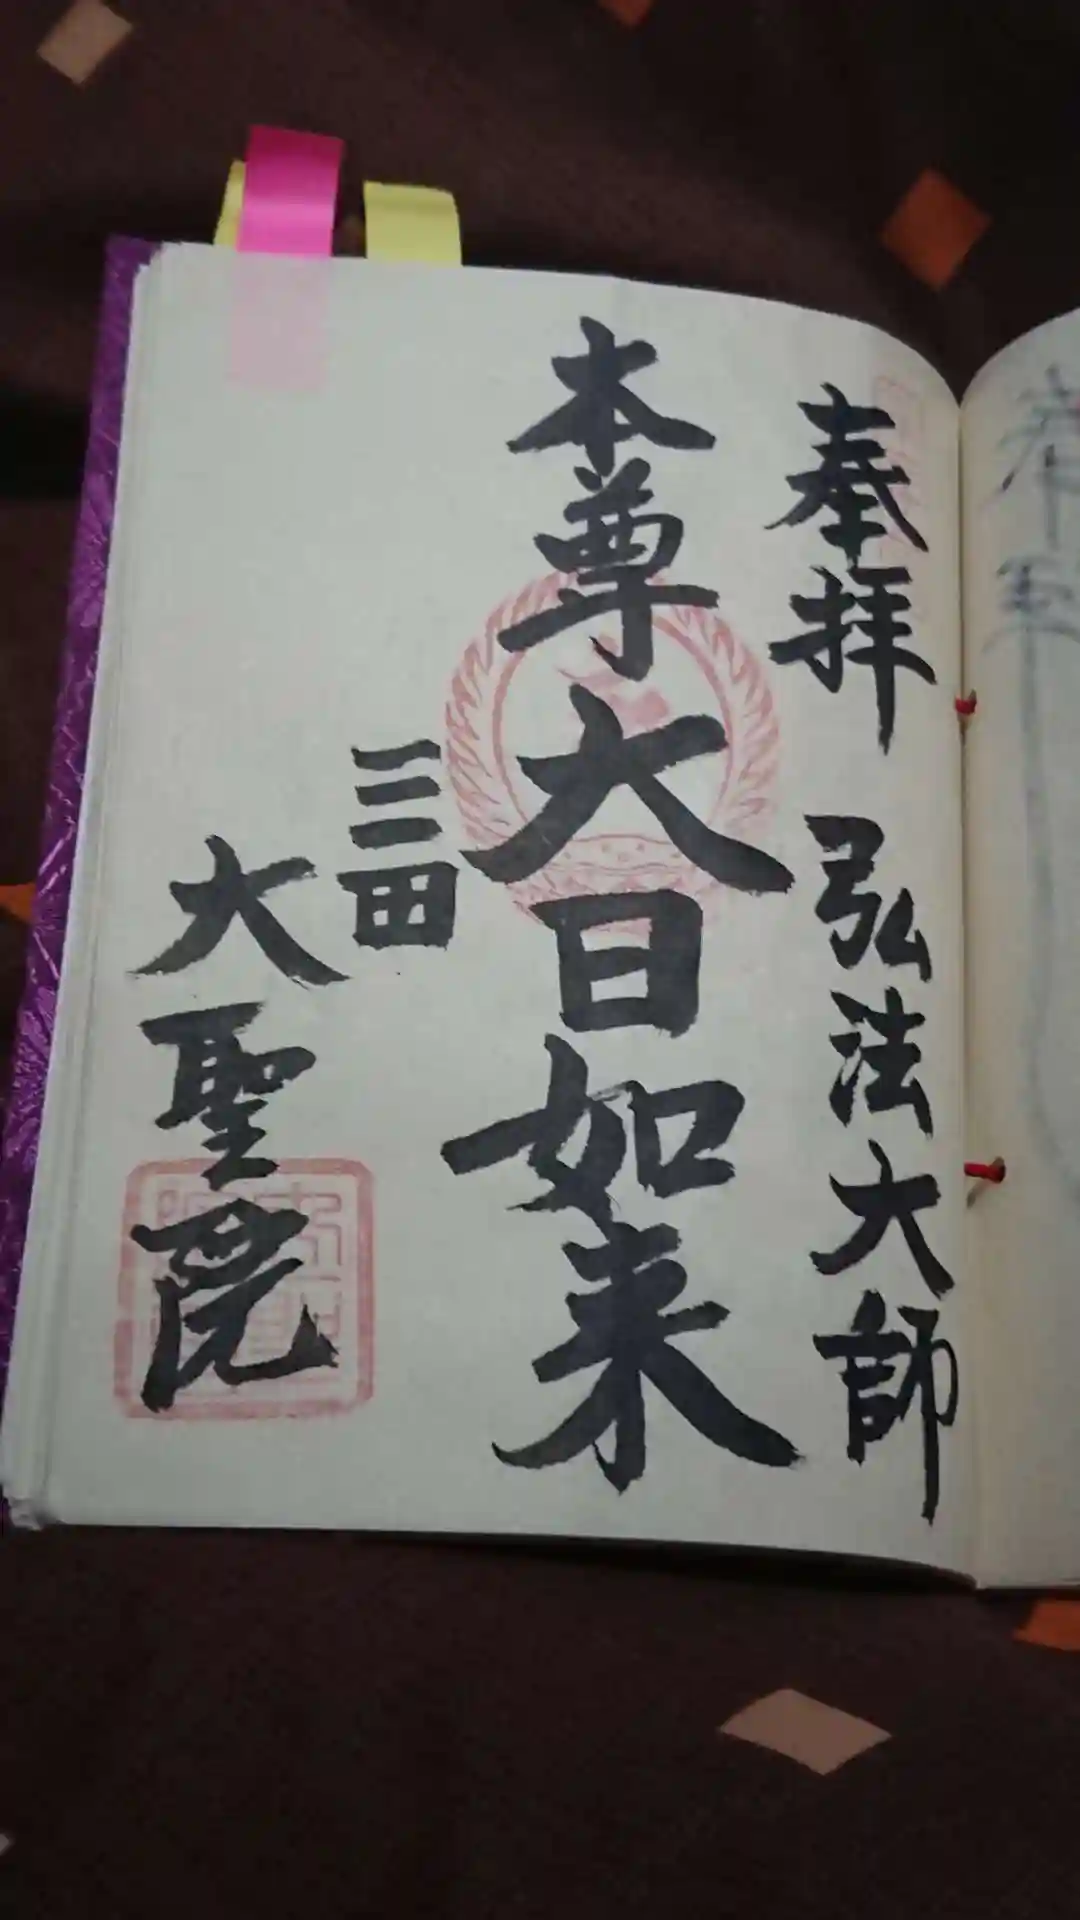 奉拝 弘法大師
本尊大日如来
三田
大聖院